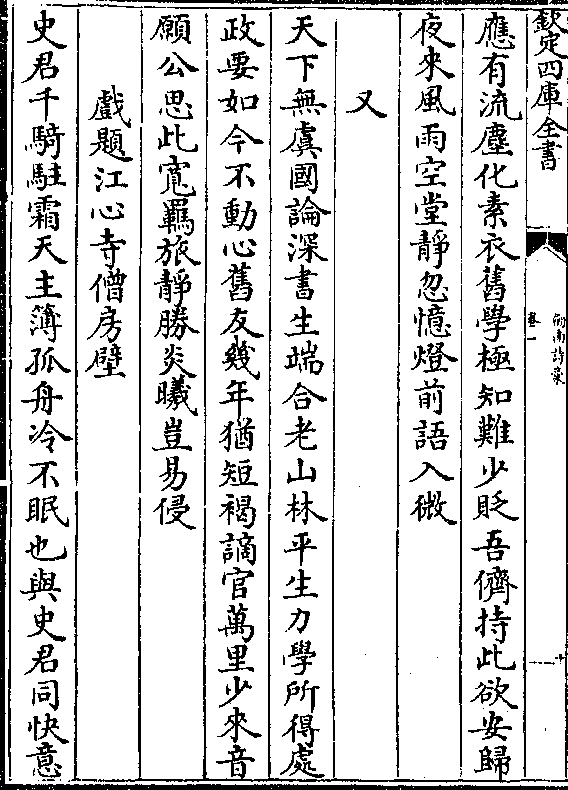 欽定四庫全書
劍南詩稾
卷一
十
應有流塵化素衣舊學極知難少貶吾儕持此欲安歸
夜來風雨空堂靜忽憶燈前語入微
又
天下無虞國論深書生端合老山林平生力學所得處
政要如今不動心舊友幾年猶短褐謫官萬里少來音
願公思此寛羇旅靜勝炎曦豈易侵
戲題江心寺僧房壁
史君千騎駐霜天主簿孤舟冷不眠也與史君同快意